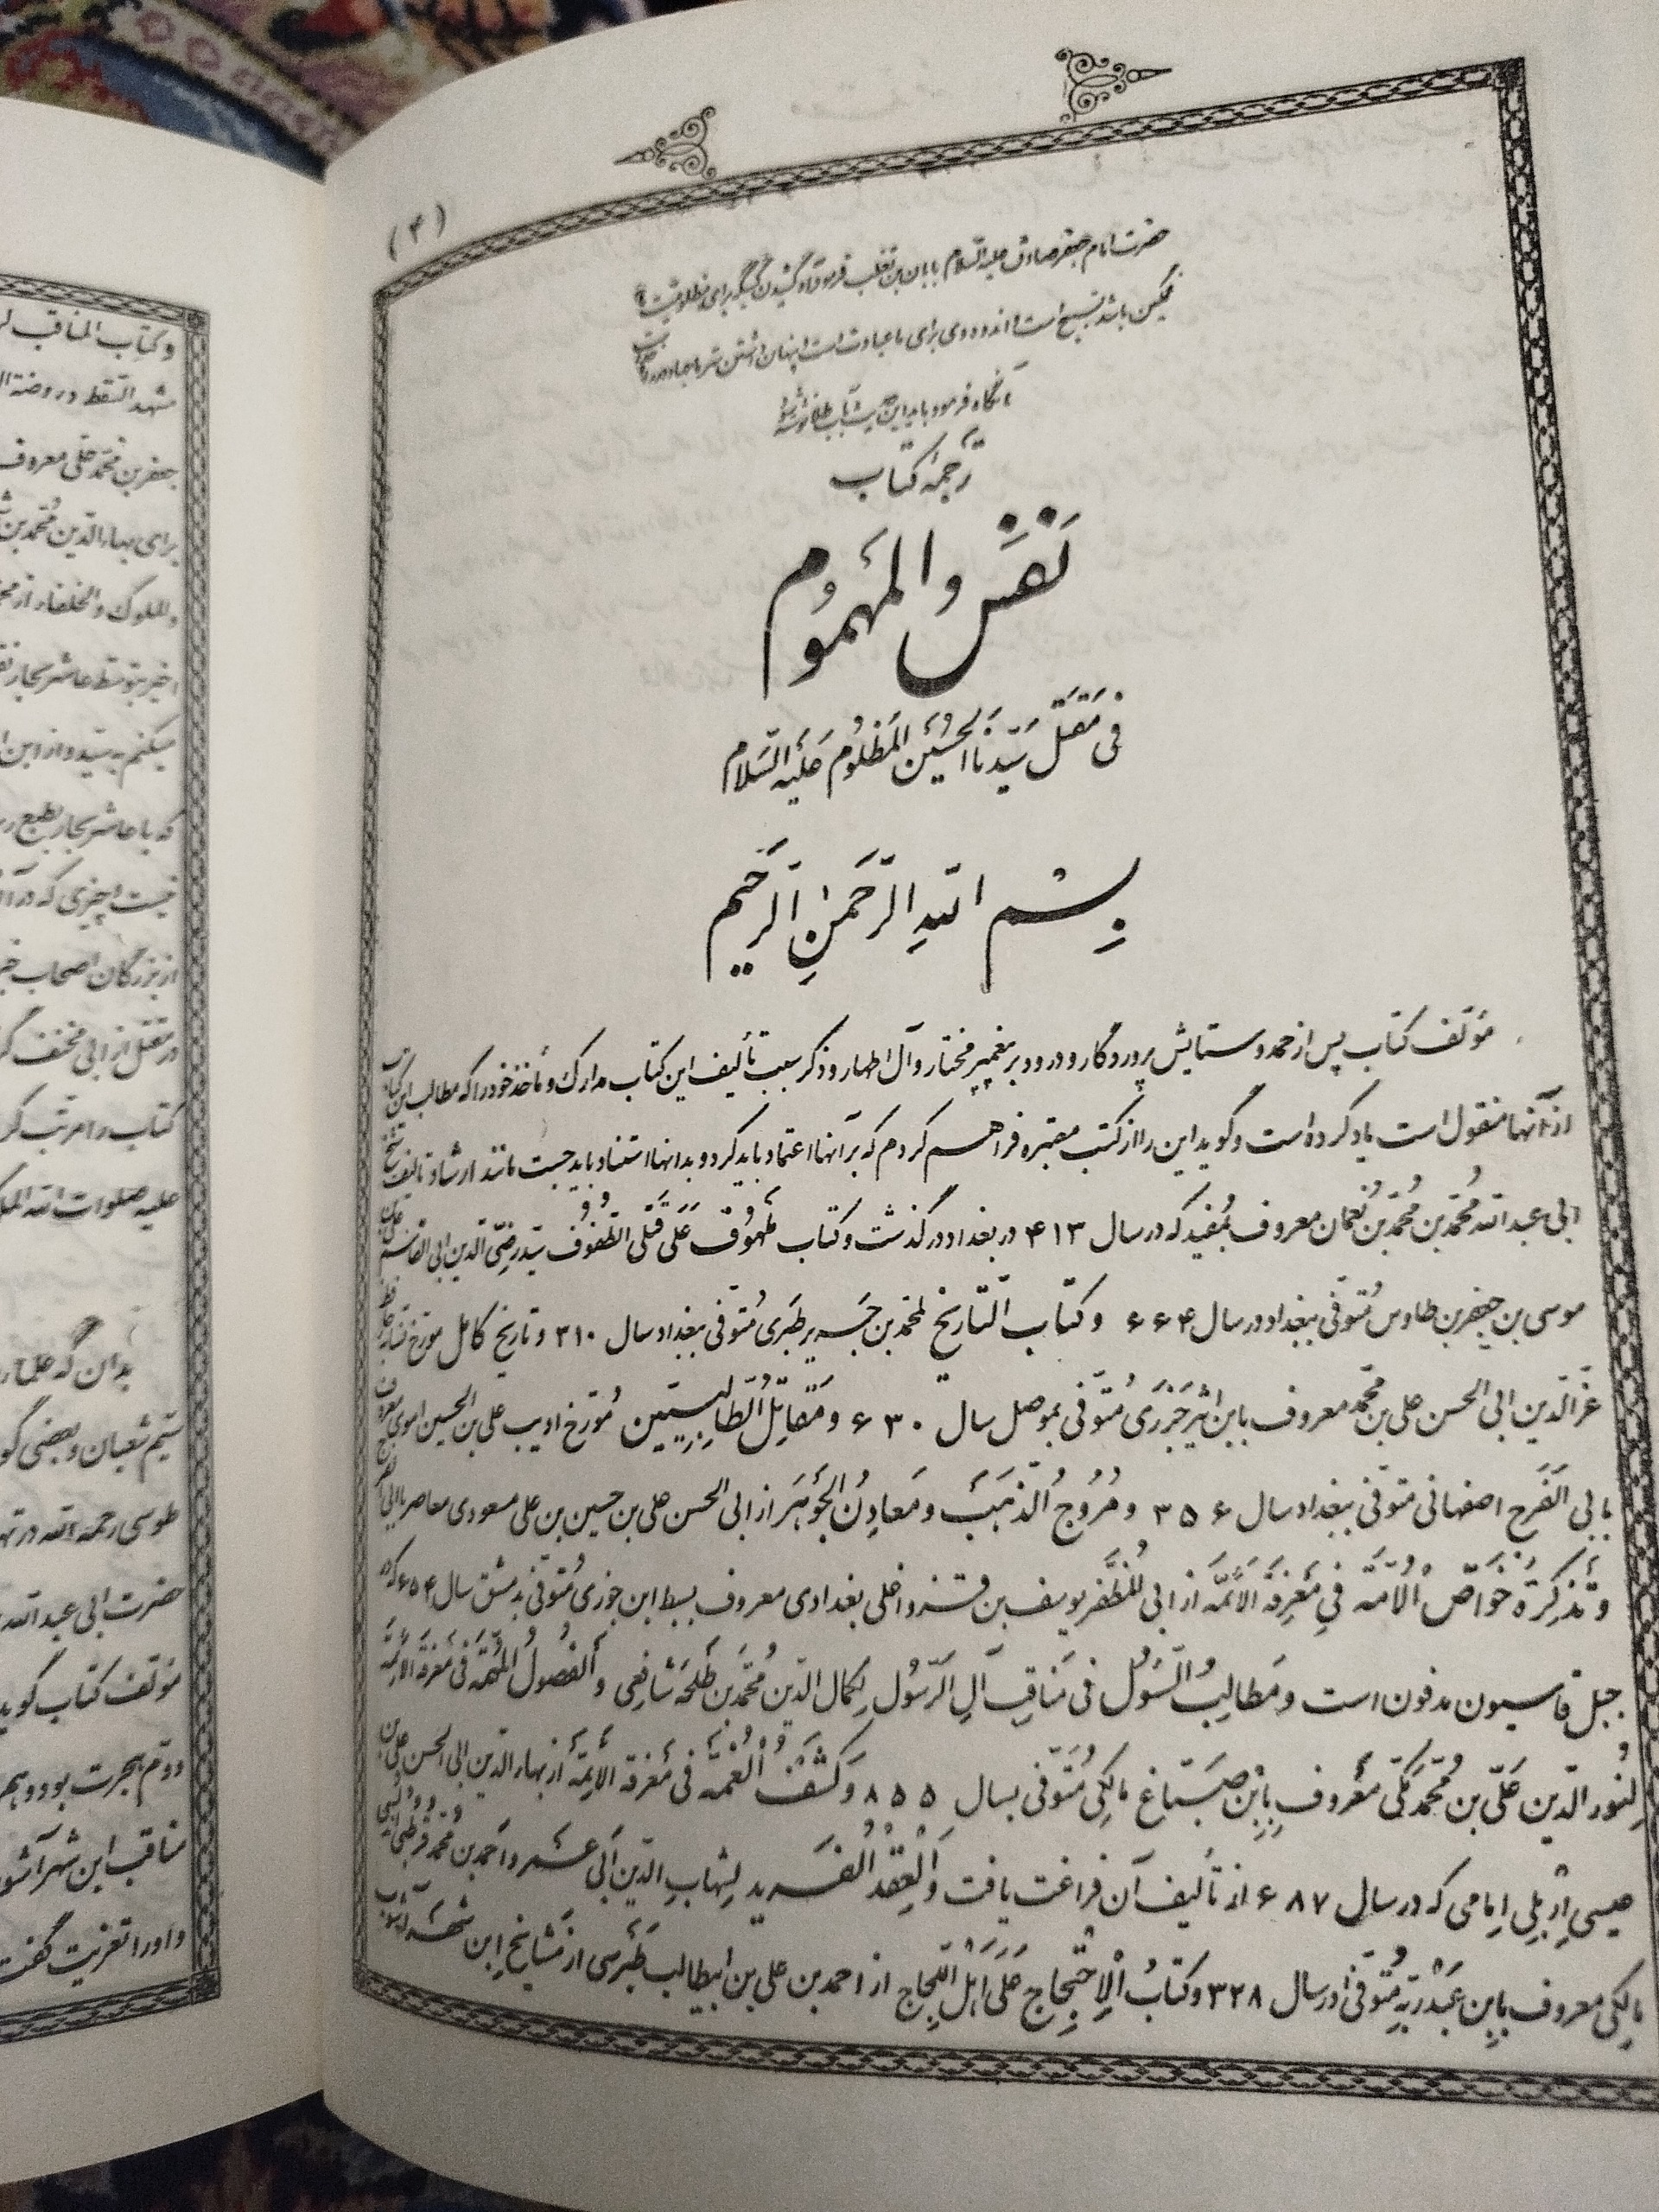 (۴)
حضرت امام جعفر صادق علیه السّلام بابان بن تغلب فرمود آه کشیدن کسیکه برای مظلومیت ما
غمگین باشد تسبیح است و اندوه وی برای ما عبادت است و پنهان داشتن سرّ ما جهاد در راه خدا است
آنگاه فرمود باید این حدیث با آب طلا نوشته شود
ترجمهٔ کتاب
نَفَسُ المَهمُوم
فی مَقتَلِ سَیّدِنَا الحُسَینِ المَظلُومِ عَلَیهِ السَّلام
بِسْمِ اللّهِ الرَّحمٰنِ الرَّحیم
مؤلّف کتاب پس از حمد و ستایش پروردگار و درود بر پیغمبر مختار و آل اطهار و ذکر سبب تألیف این کتاب مدارک و مأخذ خود را که مطالب این کتاب
از آنها منقول است یاد کرده است و گوید این را از کتب معتبره فراهم کردم که بر آنها اعتماد باید کرد و بدانها استناد باید جست مانند ارشاد تالیف شیخ
ابی عبد اللّه مُحمّد بن مُحمّد بن نُعمان معروف بمُفید که در سال ۴۱۳ در بغداد درگذشت و کتاب مَلهُوف عَلی قَتلَی الطُّفوُف سیّد رضیّ الدّین ابی القاسم علی بن
موسی بن جعفر بن طاوس مُتوفّی ببغداد در سال ۶۶۴ و کتاب التّاریخ لمحمد بن جَریر طبَری مُتوفّی ببغداد سال ۳۱۰ و تاریخ کامل مورّخ نسّابه حافظ
عزّ الدّین ابی الحسن علی بن محمّد معروف بابن اثیر جَزَری مُتوفّی بموصل سال ۶۳۰ و مَقاتِلُ الطّالِبِیّین مُورّخ ادیب علی بن الحسین اموی معروف
بابی الفَرَج اصفهانی متوفّی ببغداد سال ۳۵۶ و مُرُوجُ الذَّهَب وَ مَعادِنُ الجَوهَر از ابی الحسن علی بن حسین بن علی مسعودی معاصر با ابی الفرج
و تَذکِرَةُ خَواصّ الاُمّة فی مَعرِفَةِ الاَئمّة از ابی المُظفّر یوسف بن قزاوغلی بغدادی معروف بسبط ابن جوزی مُتوفّی بدمشق سال ۶۵۴ که در
جبل قاسیون مدفون است و مَطالِبُ السَّئوُل فی مَناقِبِ آلِ الرّسُول لِکمال الدّین مُحمّد بن طَلحَه شافعی و الفُصُولُ المُهِمّة فی مَعرفَةِ الاَئمّة
لِنُور الدّین عَلیّ بن مُحمّد مَکّی مَعرُوف بِابنِ صَبّاغ مالِکی مُتَوفّی بسال ۸۵۵ وَ کَشفُ الغُمّة فی مَعرفة الاَئِمّة از بهاء الدّین ابی الحسن علی بن
عیسی اِربِلی اِمامی که در سال ۶۸۷ از تألیف آن فراغت یافت وَ العِقدُ الفَرید لِشِهابِ الدّین اَبی عمرو احمد بن مُحمّد قُرطُبی
مالِکی معروف بِابن عَبدِ رَبّه مُتوفّی در سال ۳۲۸ و کتابُ الاِحتِجاج عَلی اَهلِ اللّجاج از احمد بن علی بن ابیطالب طَبَرسی از مشایخ ابن شهر آشوب
و کتاب المناقب
مشهد السّقط در روضة
جعفر بن محمّد حلّی معروف
برای بهاء الدّین مُحمّد بن
والملوک و الخلفاء از
اخیر بتوسّط عاشر بحار
میکنم به سیّد و از ابن
که با عاشر بحار بطبع
نیست و چیزی که در آن
از بزرگان اصحاب
در مقتل از ابی مخنف
کتاب را مرتّب
علیه صلوات اللّه
بدان که علماء
سیّم شعبان و بعضی
طوسی رحمه اللّه در
حضرت ابی عبد اللّه
مؤلّف کتاب گوید
دوّم هجرت بود و
مناقب ابن شهر آشوب
و او را تعزیت گفت